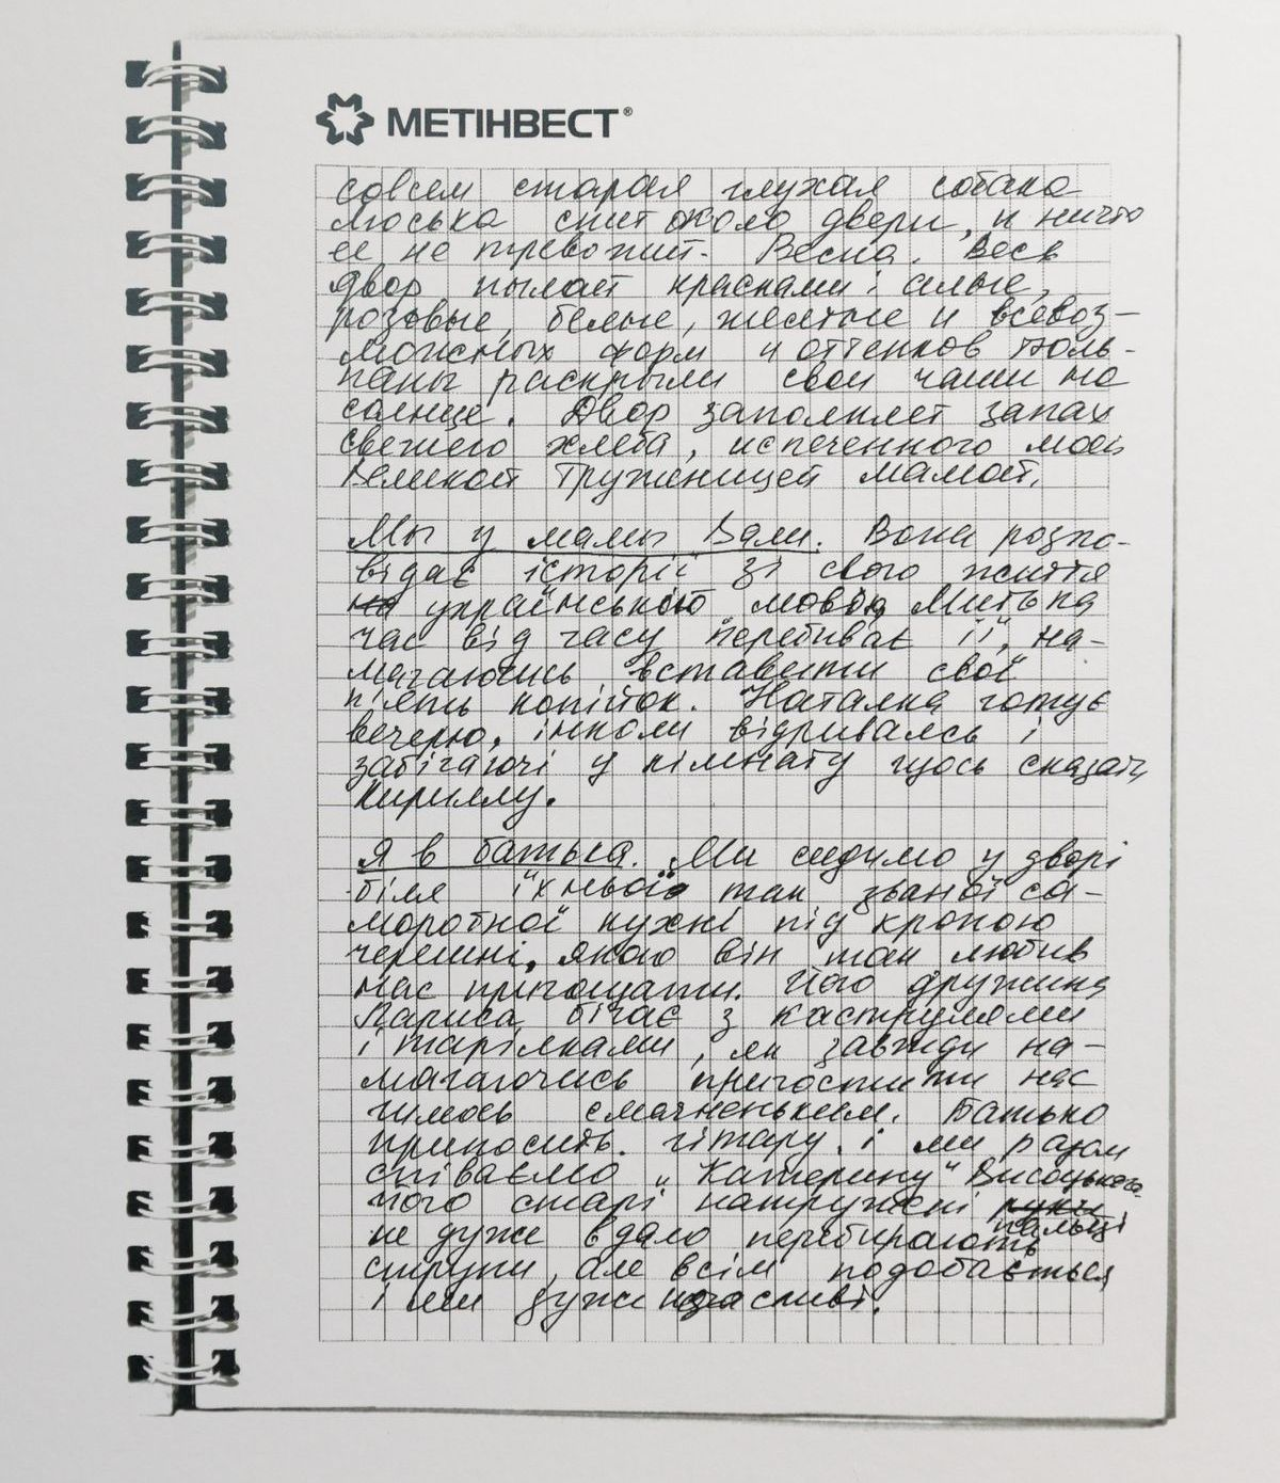 МЕТІНВЕСТ®
совсем старая глухая собака
Люська спит около двери, и ничто
ее не тревожит. Весна. Весь
двор пылает красками: алые,
розовые, белые, желтые и всевоз-
можных форм и оттенков тюль-
паны раскрыли свои чаши на
солнце. Двор заполняет запах
свежего хлеба, испеченного моей
великой труженицей мамой.
Мы у мамы Вали. Вона розпо-
відає історії зі свого життя
на українською мовою, Митька
час від часу перебиває її, на-
магаючись вставити свої
п'ять копійок. Наталка готує
вечерю, інколи відриваясь і
забігаючі у кімнату щось сказать
Кириллу.
Я в батька. Ми сидимо у дворі
біля їхньої так званої са-
моробної кухні під кроною
черешні, якою він так любив
нас пригощати. Його дружина
Лариса бігає з каструлями
і тарілками, як завжди на-
магаючись пригостити нас
чимось смачненьким. Батько
приносить гітару і ми разом
співаємо „Катерину" Висоцького.
Його старі натружені руки
пальці
не дуже вдало перебирають
струни, але всім подобається
і ми дуже щасливі.